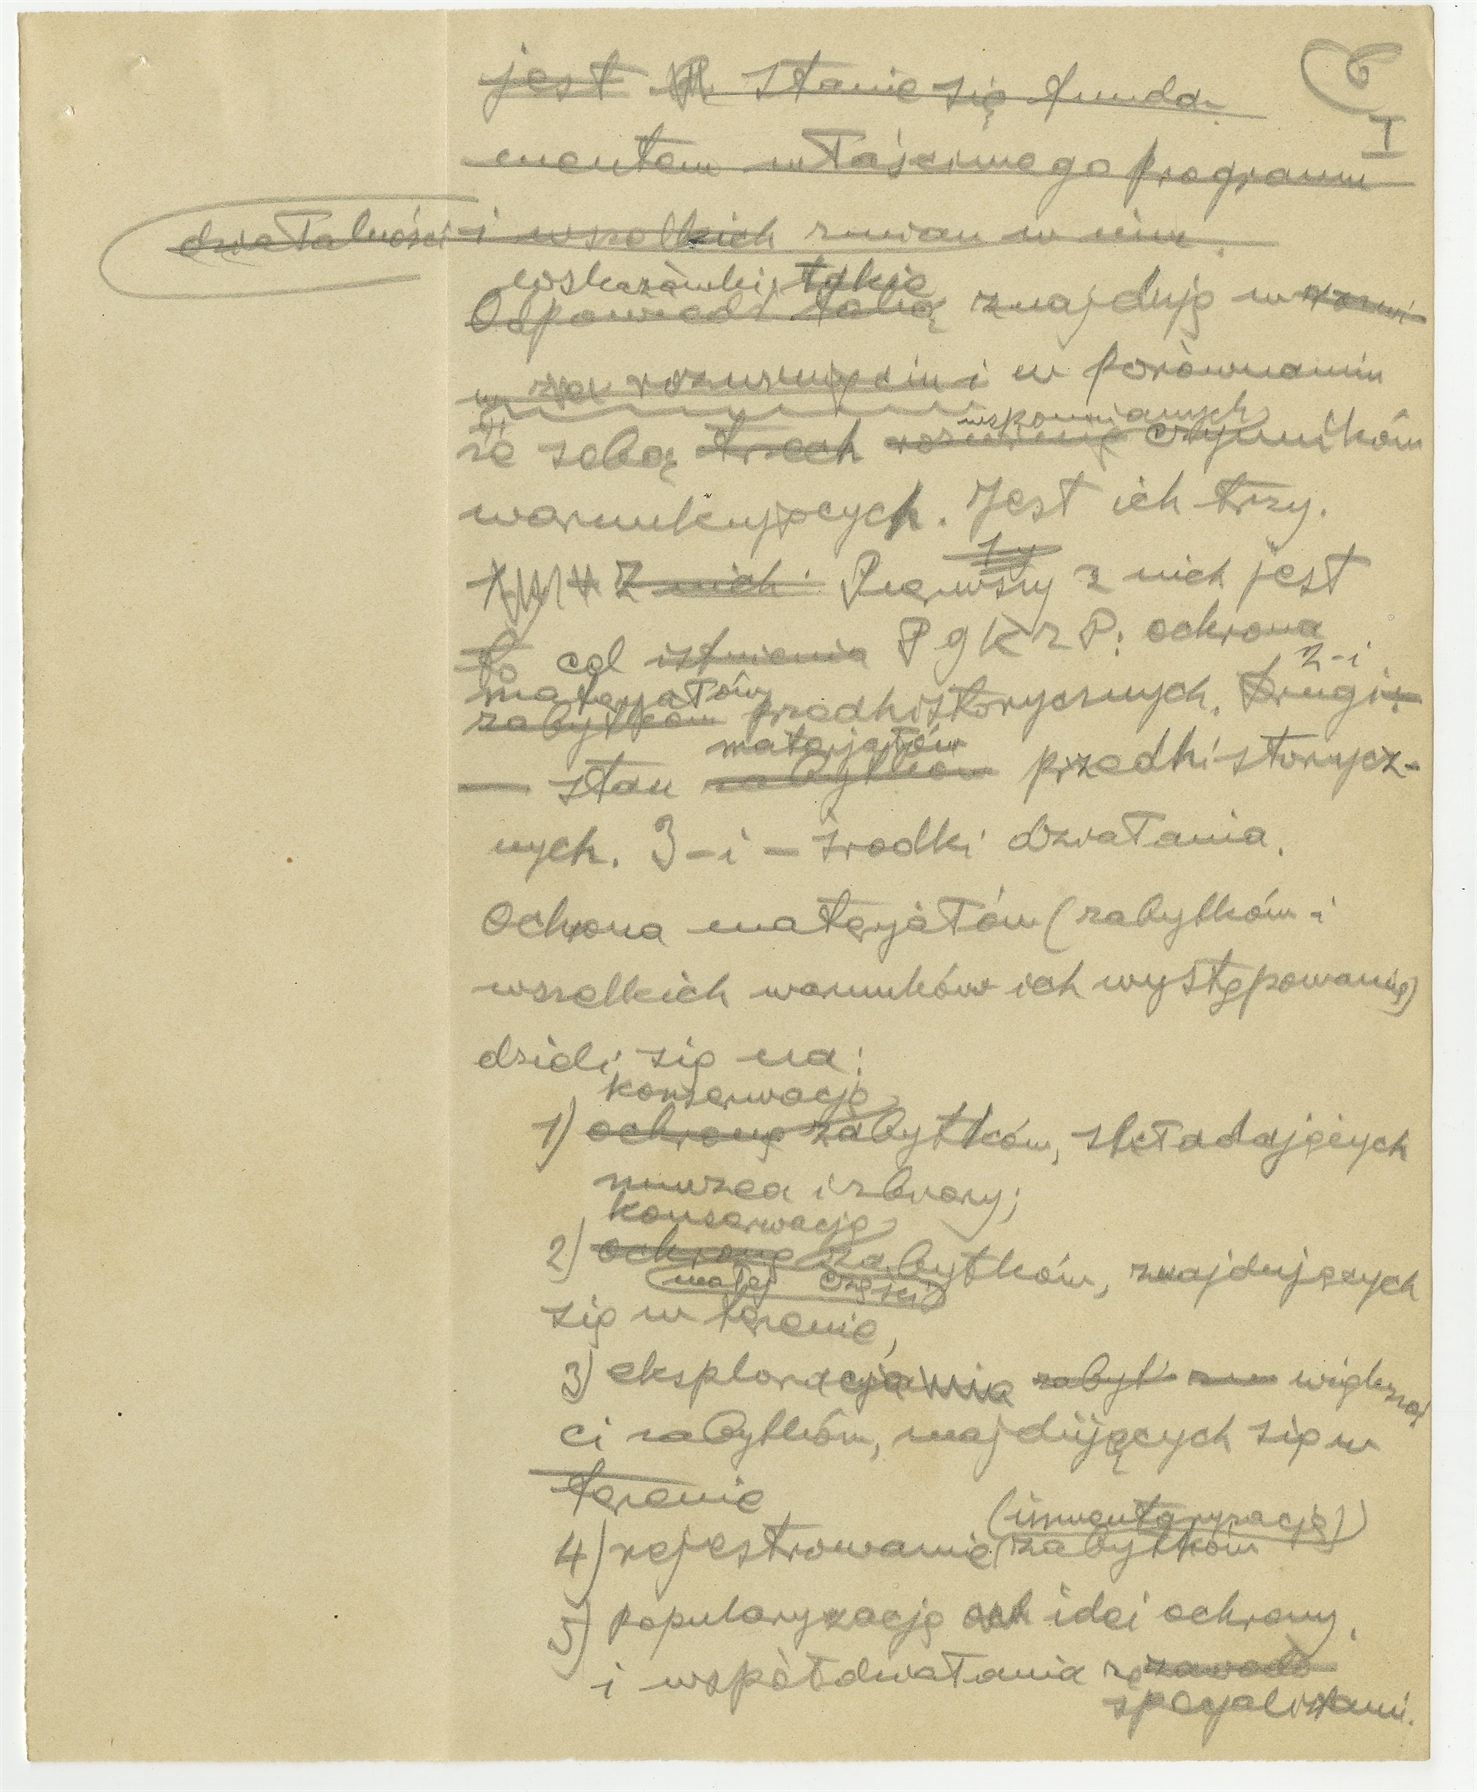 6
I
jest stanie się funda-
mentem właściwego programu
działalności i wszelkich zmian w nim.
wskazówki takie
Odpowiedź taką znajduję w rozwi-
w rozumieniu i w porównaniu
wspomnianych
ze sobą trzech czynników
warunkujących. Jest ich trzy.
1-y
Z nich Pierwszy z nich jest
to cel istnienia P g K Z P: ochrona
materjałów 2-i
zabytków przedhistorycznych. Drugi:
materjałów
— stan zabytków przedhistorycz-
nych. 3-i — środki działania.
Ochrona materjałów (zabytków i
wszelkich warunków ich występowania)
dzieli się na:
konserwację
1) ochronę zabytków, składających
muzea i zbiory;
konserwację
2) ochronę zabytków, znajdujących
małej części
się w terenie,
3) eksploracja zabyt. większoś
ci zabytków, znajdujących się w
terenie
(inwentaryzację)
4) rejestrowanie zabytków
5) popularyzację och idei ochrony,
i współdziałania z zawodo
specjalistami.